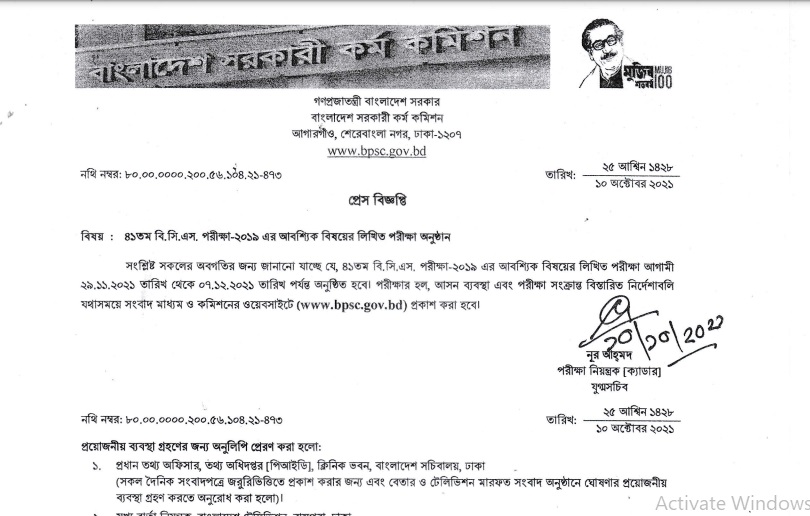 বাংলাদেশ সরকারী কর্ম কমিশন
মুজিব MUJIB
শতবর্ষ 100
গণপ্রজাতন্ত্রী বাংলাদেশ সরকার
বাংলাদেশ সরকারী কর্ম কমিশন
আগারগাঁও, শেরেবাংলা নগর, ঢাকা-১২০৭
www.bpsc.gov.bd
নথি নম্বর: ৮০.০০.০০০০.২০০.৫৬.১০৪.২১-৪৭৩
তারিখ: ২৫ আশ্বিন ১৪২৮
১০ অক্টোবর ২০২১
প্রেস বিজ্ঞপ্তি
বিষয় : ৪১তম বি.সি.এস. পরীক্ষা-২০১৯ এর আবশ্যিক বিষয়ের লিখিত পরীক্ষা অনুষ্ঠান
সংশ্লিষ্ট সকলের অবগতির জন্য জানানো যাচ্ছে যে, ৪১তম বি.সি.এস. পরীক্ষা-২০১৯ এর আবশ্যিক বিষয়ের লিখিত পরীক্ষা আগামী
২৯.১১.২০২১ তারিখ থেকে ০৭.১২.২০২১ তারিখ পর্যন্ত অনুষ্ঠিত হবে। পরীক্ষার হল, আসন ব্যবস্থা এবং পরীক্ষা সংক্রান্ত বিস্তারিত নির্দেশাবলি
যথাসময়ে সংবাদ মাধ্যম ও কমিশনের ওয়েবসাইটে (www.bpsc.gov.bd) প্রকাশ করা হবে।
১০/১০/২০২১
নূর আহ্‌মদ
পরীক্ষা নিয়ন্ত্রক [ক্যাডার]
যুগ্মসচিব
নথি নম্বর: ৮০.০০.০০০০.২০০.৫৬.১০৪.২১-৪৭৩
তারিখ: ২৫ আশ্বিন ১৪২৮
১০ অক্টোবর ২০২১
প্রয়োজনীয় ব্যবস্থা গ্রহণের জন্য অনুলিপি প্রেরণ করা হলো:
১. প্রধান তথ্য অফিসার, তথ্য অধিদপ্তর [পিআইডি], ক্লিনিক ভবন, বাংলাদেশ সচিবালয়, ঢাকা
(সকল দৈনিক সংবাদপত্রে জরুরিভিত্তিতে প্রকাশ করার জন্য এবং বেতার ও টেলিভিশন মারফত সংবাদ অনুষ্ঠানে ঘোষণার প্রয়োজনীয়
ব্যবস্থা গ্রহণ করতে অনুরোধ করা হলো)।
Activate Windows